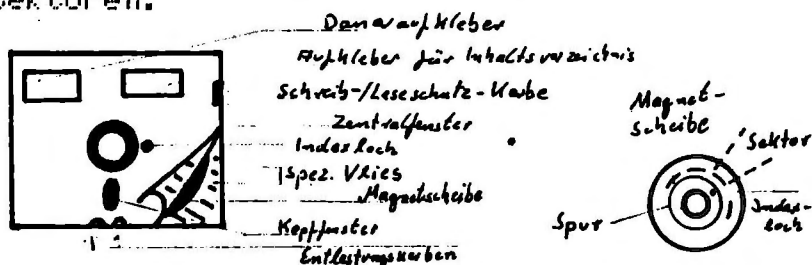 ektoren.
Daueraufkleber
Aufkleber für Inhaltsverzeichnis
Schreib-/Leseschutz-Kerbe
Zentralfenster
Indexloch
spez. Vlies
Magnetscheibe
Kopffenster
Entlastungskerben
Magnet-
scheibe
Sektor
Spur
Index-
loch